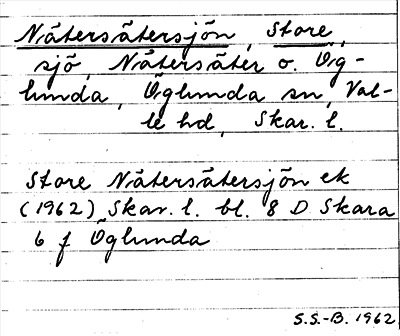 Nätersätersjön, Store,
sjö, Nätersäter o. Ög-
lunda, Öglunda sn, Val-
le hd, Skar. l.
Store Nätersätersjön ek
(1962) Skar. l. bl. 8 D Skara
6 f Öglunda
S.S.-B. 1962